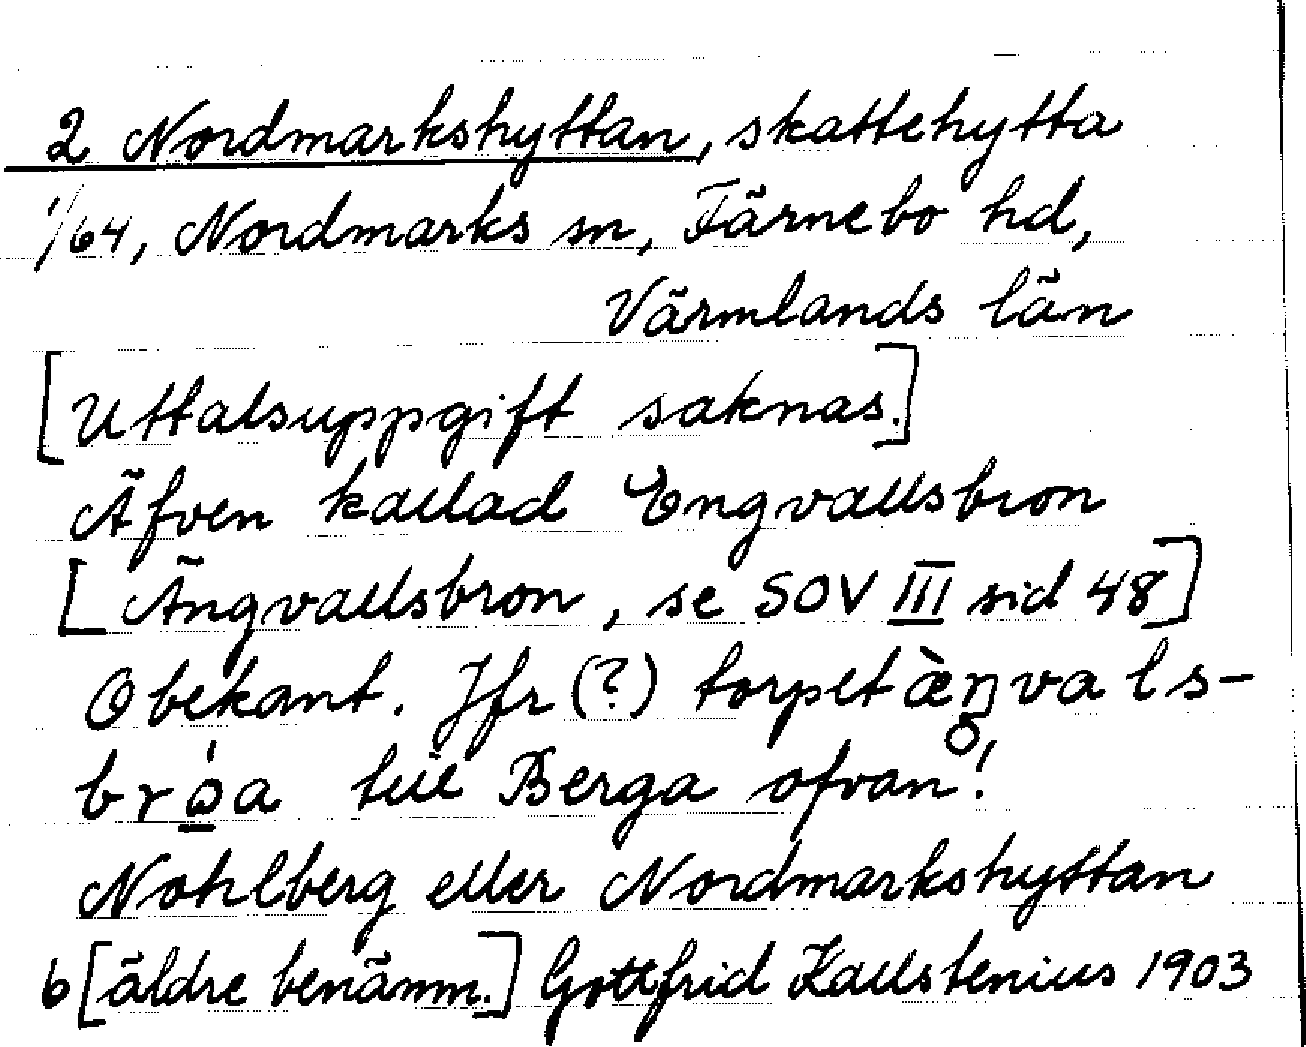 2 Nordmarkshyttan, skattehytta
1/64, Nordmarks sn, Färnebo hd,
Värmlands län
[Uttalsuppgift saknas.]
Äfven kallad Engvallsbron
[Ängvallsbron, se SOV III sid 48]
Obekant. Jfr (?) torpet æ̀ŋvals-
brǫ́a till Berga ofvan!
Nohlberg eller Nordmarkshyttan
b [äldre benämn.] Gottfrid Kallstenius 1903